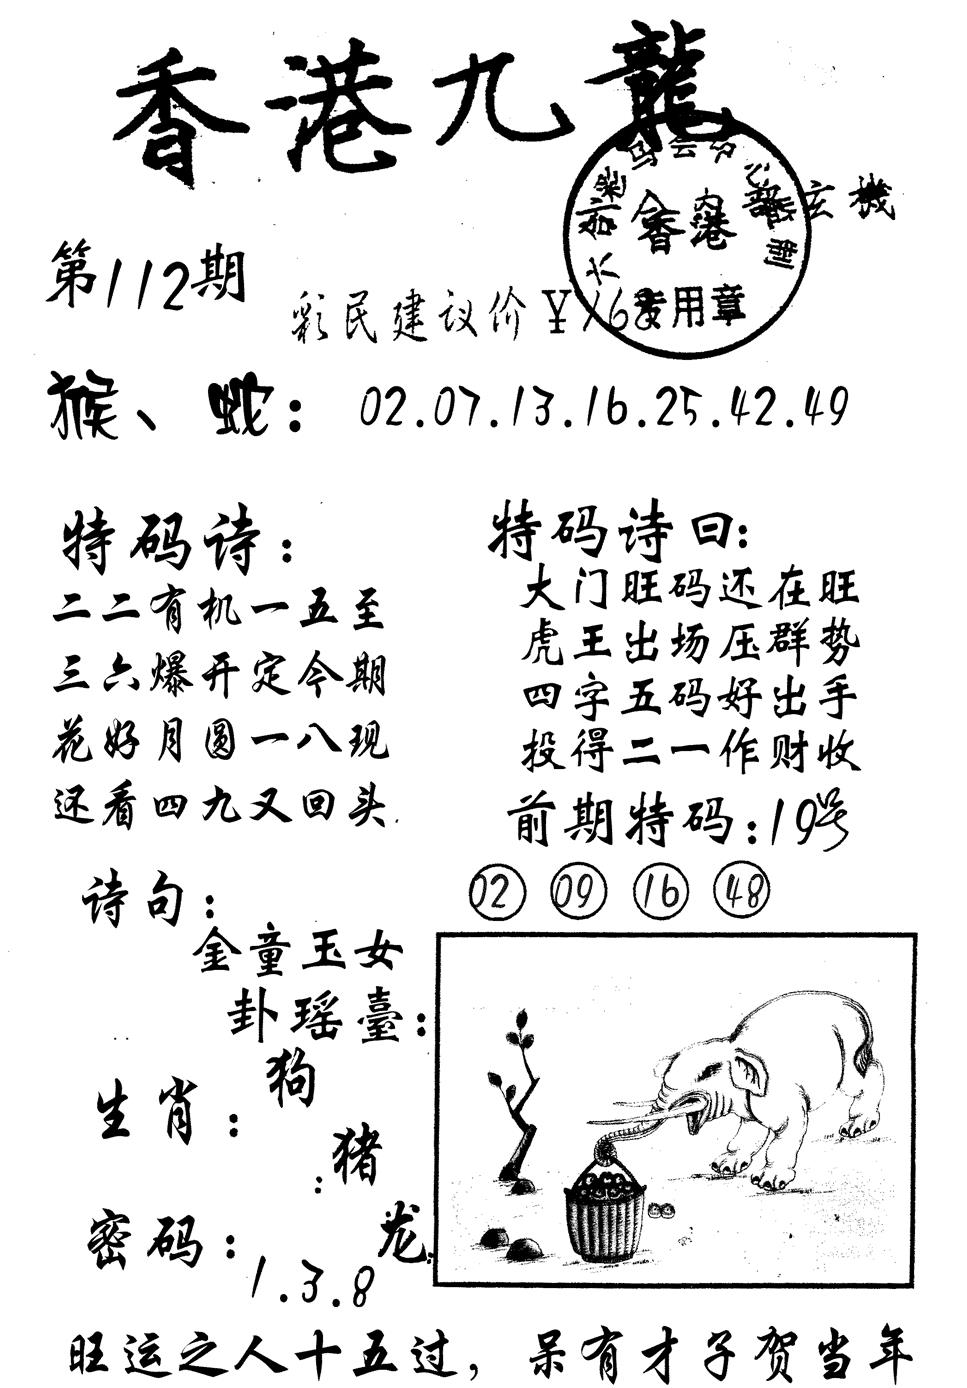 香港九龍
玄機
香港
专用章
第112期
彩民建议价¥168
猴、蛇：02.07.13.16.25.42.49
特码诗：
二二有机一五至
三六爆开定今期
花好月圆一八现
还看四九又回头.
特码诗曰：
大门旺码还在旺
虎王出场压群势
四字五码好出手
投得二一作财收
前期特码：19号
02 09 16 48
诗句：
金童玉女
卦瑶臺：
生肖：狗
猪
龙
密码：1.3.8
旺运之人十五过，呆有才子贺当年